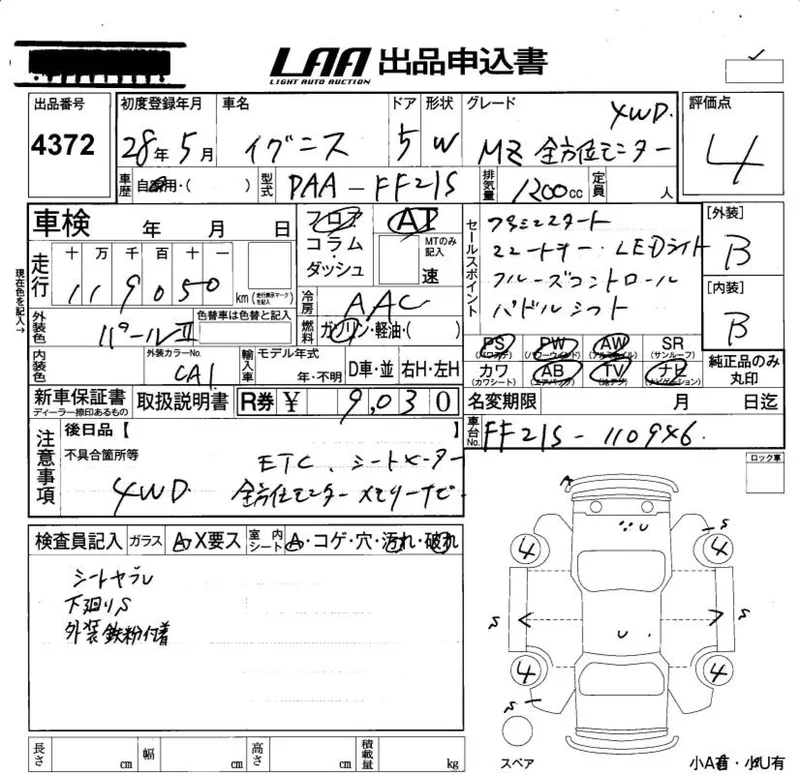 LAA 出品申込書
LIGHT AUTO AUCTION
出品番号 初度登録年月 車名 ドア 形状 グレード 評価点
4372 28年 5月 イグニス 5 W 4WD MZ 全方位モニター 4
車歴 自家用・( ) 型式 DAA-FF21S 排気量 1200cc 定員 人
車検 年 月 日 フロア コラム・ダッシュ AT MTのみ記入 速
走行 十 万 千 百 十 一
119050 km (走行距離メーター)
現在色を記入→
冷房 AAC
外装色 パールII 色替車は色替と記入 燃料 ガソリン・軽油・( )
内装色 外装カラーNo. CA1 輸入車 モデル年式 年・不明 D車・並 右H・左H
新車保証書 ディーラー捺印あるもの 取扱説明書 R券 ¥ 9,030
セールスポイント
プッシュスタート
シートヒーター・LEDライト
クルーズコントロール
パドルシフト
[外装] B
[内装] B
PS (パワステ) PW (パワーウインド) AW (アルミホイル) SR (サンルーフ)
カワ (カワシート) AB (エアバック) TV (地デジ) ナビ (ナビゲーション)
純正品のみ丸印
名変期限 月 日迄
車台No. FF21S-110946
注意事項 後日品【 】
不具合箇所等 ETC、シートヒーター
4WD 全方位モニターメモリーナビ
ロック車
検査員記入 ガラス A・X要ス 室内シート A・コゲ・穴・汚れ・破れ
シートヤブレ
下廻りS
外装鉄粉付着
A
U
S
4 4
S S
U
4 4
S
スペア
小A有・小U有
長さ cm 幅 cm 高さ cm 積載量 kg